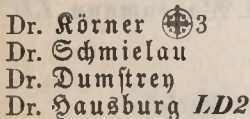 Dr. Körner 3
Dr. Schmielau
Dr. Dumstrey
Dr. Hausburg LD2